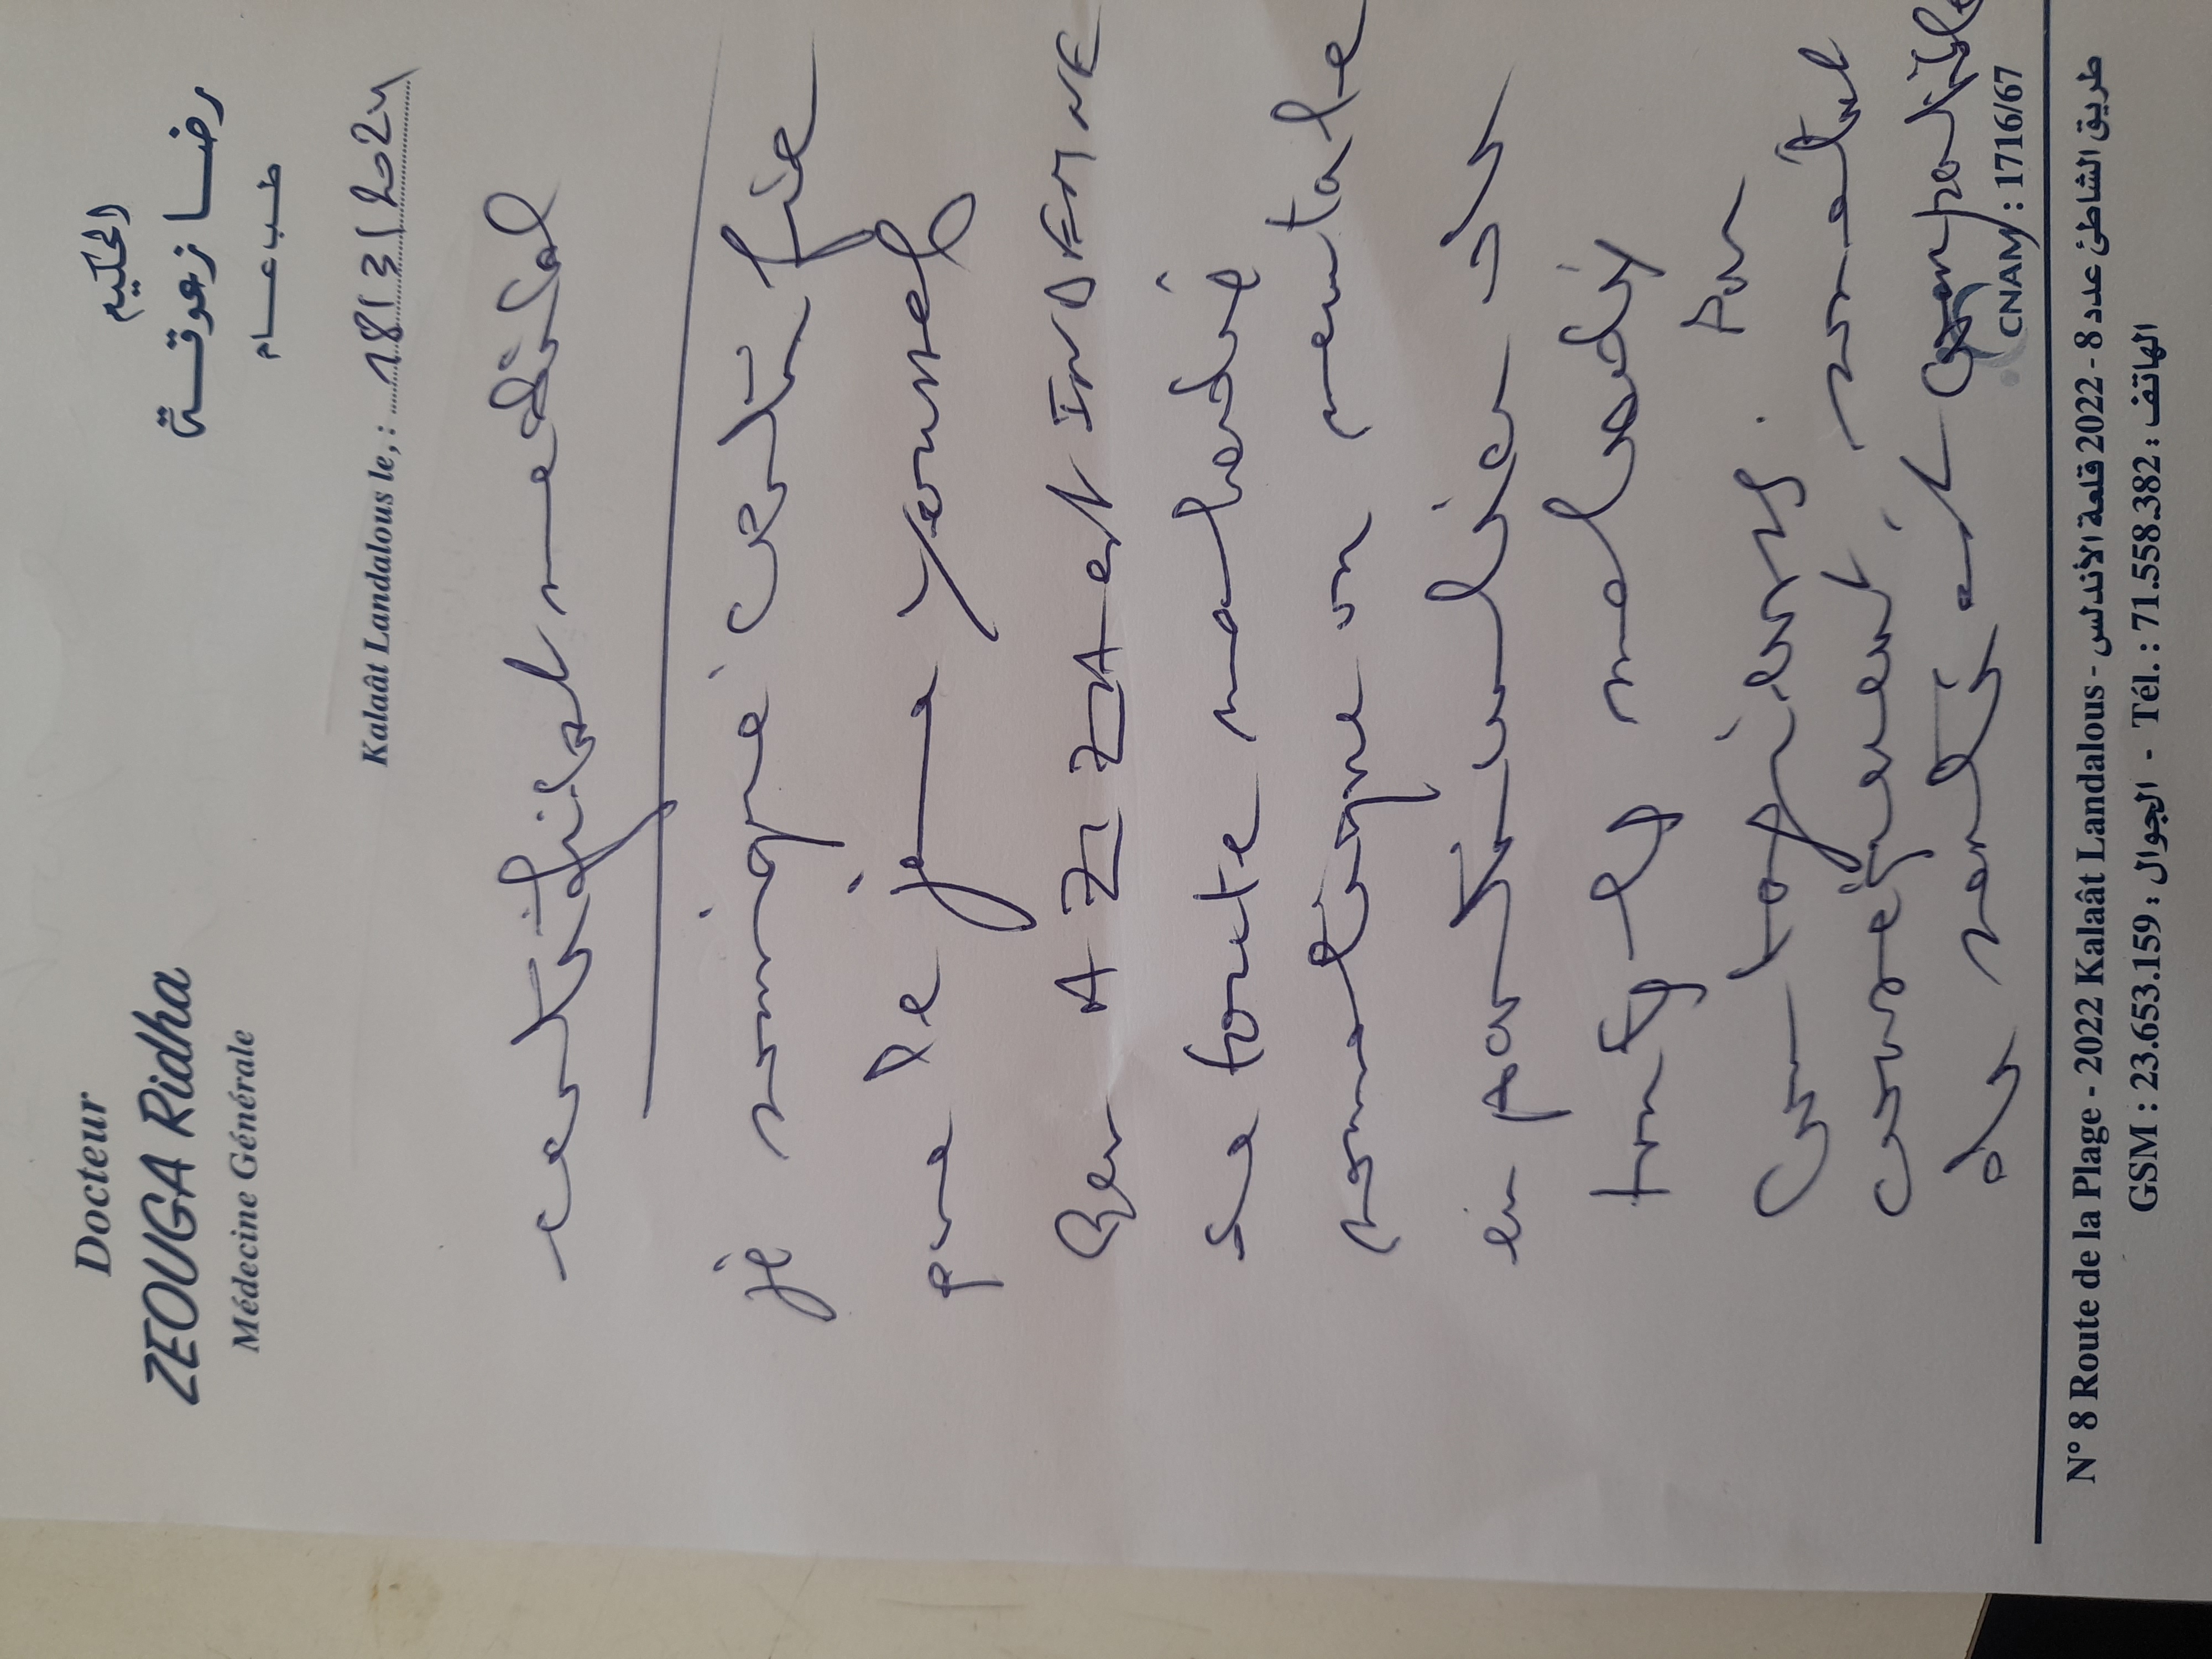 Docteur
ZEOUGA Ridha
Médecine Générale
الحكيم
رضا زعوقة
طب عام
Kalaât Landalous le, : 18/3/2024
certificat medical
je soussigné certifie
que le jeune Yousef
Ben AZZZA INDEMNE
de toute maladie
somatique ou mentale
en particulier
maladies
contagieuses. Par
conséquent son etat
de santé est compatible
CNAM : 1716/67
N° 8 Route de la Plage - 2022 Kalaât Landalous - طريق الشاطئ عدد 8 - 2022 قلعة الأندلس
GSM : 23.653.159 : الجوال - Tél. : 71.558.382 : الهاتف